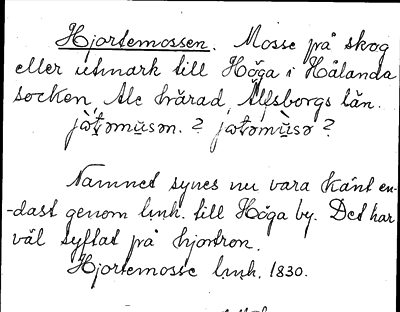 Hjortemossen. Mosse på skog
eller utmark till Höga i Hålanda
socken, Ale härad, Älfsborgs län.
jò̤t̤ǝmu̇sǝn. ? jo̤t̤ǝmu̇̀sǝ ?
Namnet synes nu vara känt en-
-dast genom lmh. till Höga by. Det har
väl syftat på hjortron.
Hjortemosse lmh. 1830.